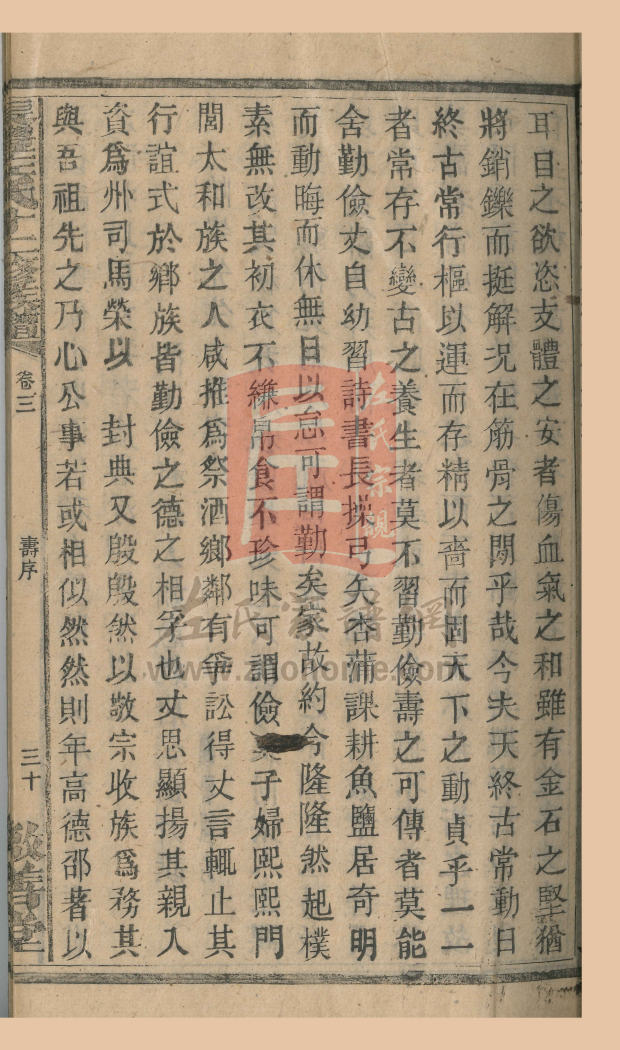 耳目之欲恣支體之安者傷血氣之和雖有金石之堅猶
將銷鑠而挺解况在筋骨之間乎哉今夫天終古常動日
終古常行樞以運而存精以嗇而固天下之動貞乎一一
者常存不變古之養生者莫不習勤儉壽之可傳者莫能
舍勤儉丈自幼習詩書長操弓矢杏蒲課耕魚鹽居奇明
而動晦而休無日以怠可謂勤矣家故約今隆隆然起樸
素無改其初衣不縑帛食不珍味可謂儉矣子婦熙熙門
閭太和族之人咸推爲祭酒鄉鄰有爭訟得丈言輒止其
行誼式於鄉族皆勤儉之德之相孚也丈思顯揚其親入
貲爲州司馬榮以 封典又殷殷然以敬宗收族爲務其
與吾祖先之乃心公事若或相似然然則年高德邵著以
卷三
壽序
三十
左氏宗親
左氏家譜網
www.zuohome.com